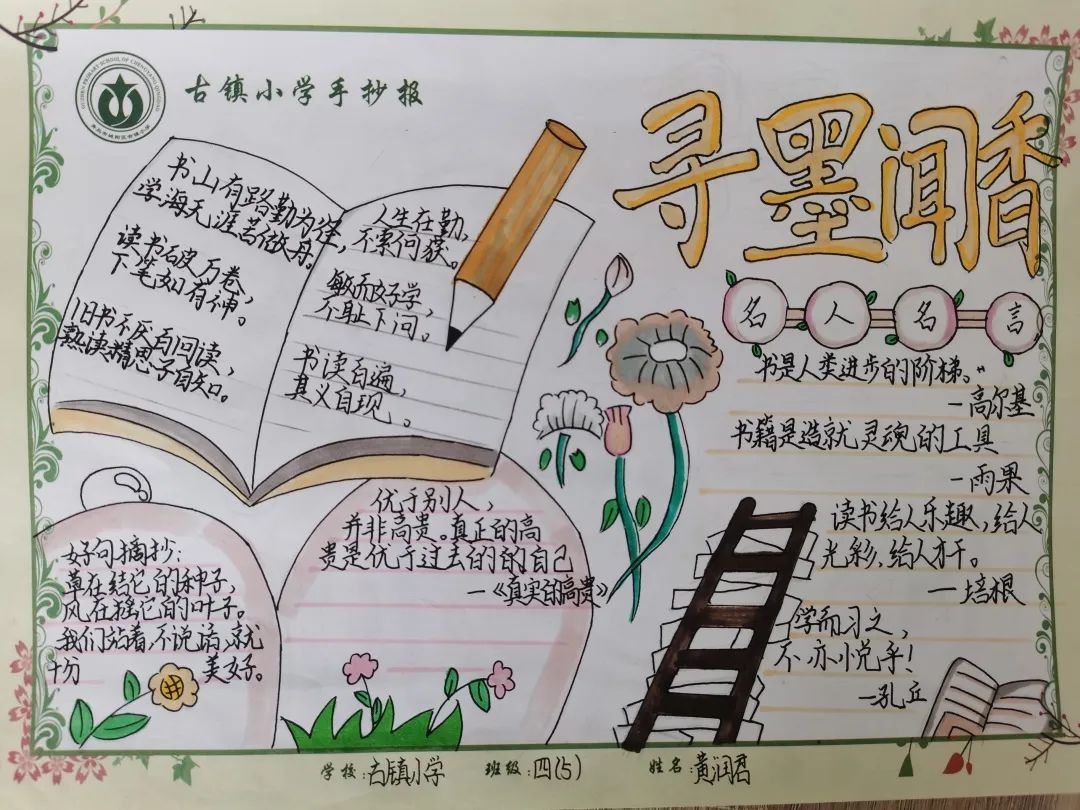 古镇小学手抄报
寻墨闻香
书山有路勤为径,
学海无涯苦做舟。
读书破万卷,
下笔如有神。
旧书不厌百回读,
熟读精思子自知。
人生在勤,
不索何获。
敏而好学,
不耻下问。
书读百遍,
其义自现。
名人名言
书是人类进步的阶梯。"
—高尔基
书籍是造就灵魂的工具
—雨果
读书给人乐趣,给人
光彩,给人才干。
—培根
学而习之,
不亦小悦乎!
—孔丘
优于别人,
并非高贵。真正的高
贵是优于过去的的自己
—《真实的高贵》
好句摘抄:
草在结它的种子,
风在摇它的叶子。
我们站着,不说话,就
十分 美好。
学校:古镇小学 班级:四(5) 姓名:黄润君